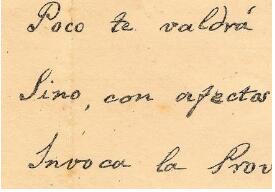 Poco te valdrá
Sino, con afectos
Invóca la Prov